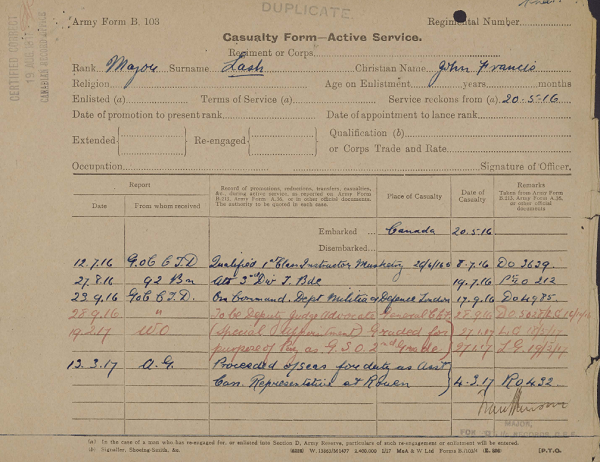 DUPLICATE.
CERTIFIED CORRECT
CANADIAN RECORD OFFICE
Army Form B. 103
Regimental Number
Casualty Form—Active Service.
Regiment or Corps
Rank Major Surname Lash Christian Name John Francis
Religion Age on Enlistment years months
Enlisted (a) Terms of Service (a) Service reckons from (a) 20-5-16
Date of promotion to present rank Date of appointment to lance rank
Extended Re-engaged Qualification (b)
or Corps Trade and Rate
Occupation Signature of Officer.
Report
Date From whom received
Record of promotions, reductions, transfers, casualties, &c. during active service, as reported on Army Form B.213, Army Form A.36, or in other official documents. The authority to be quoted in each case.
Place of Casualty
Date of Casualty
Remarks
Taken from Army Form B.213, Army Form A.36, or other official documents.
Embarked ... Canada 20.5.16
Disembarked...
12.7.16 G.O.C C.T.D Qualified 1st Class Instructor Musketry 8.7.16 D.O 3639
27.8.16 92 Bn Att 3rd Div T. Bde 19.7.16 212
23.9.16 G.O.C C.T.D. On Command. Dept Militia & Defence London 17.9.16 D.O 4985
28.9.16 " To be Deputy Judge Advocate General 28.9.16
19.2.17 W.O (Special Appointment) Graded for 27.1.17
purpose of Pay as G.S.O. 2nd Grade 27.1.17 L.G.
13.3.17 A.G. Proceeded o/seas for duty as Asst
Can. Representative at Rouen 4.3.17 R.O 432
MAJOR,
(a) In the case of a man who has re-engaged for, or enlisted into Section D, Army Reserve, particulars of such re-engagement or enlistment will be entered.
(b) Signaller, Shoeing-Smith, &c.
[P.T.O.